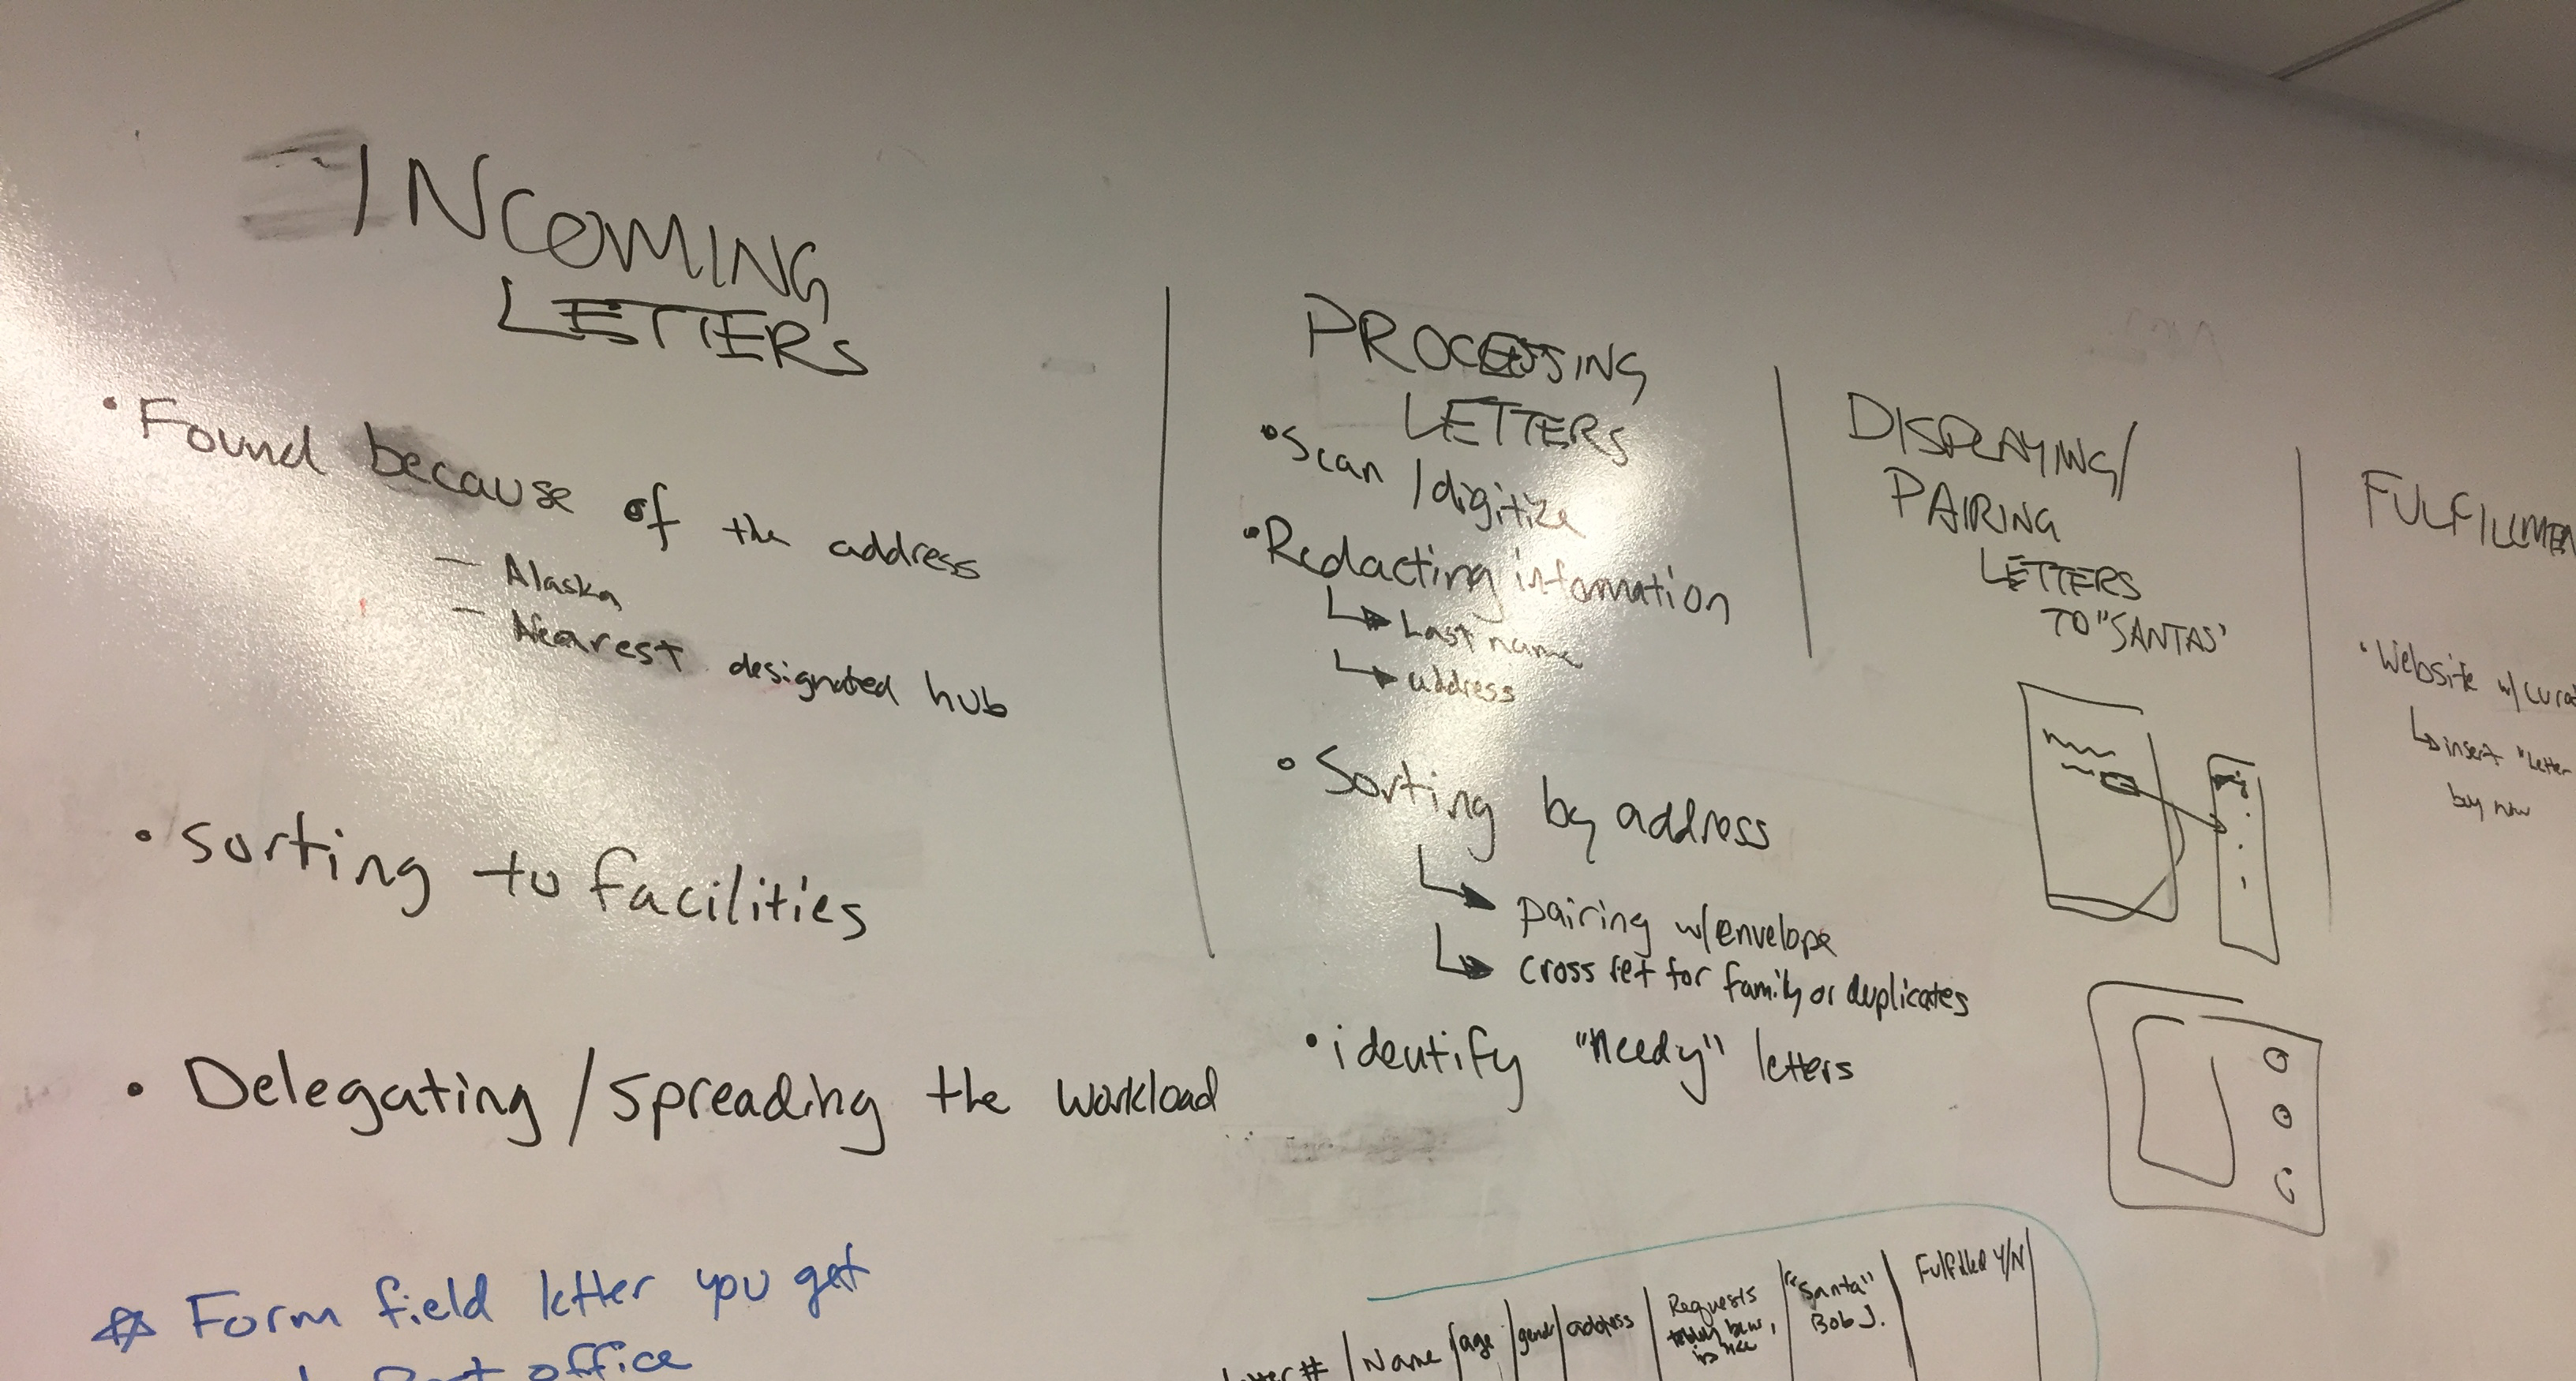 INCOMING
LETTERS
• Found because of the address
– Alaska
– Nearest designated hub
• Sorting to facilities
• Delegating / spreading the workload
☆ Form field letter you get
Post office
PROCESSING
LETTERS
• Scan / digitize
• Redacting information
↳ Last name
↳ address
• Sorting by address
↳ pairing w/ envelope
↳ cross ref for family or duplicates
• identify "needy" letters
DISPLAYING/
PAIRING
LETTERS
TO "SANTAS"
FULFILLMEN
• Website w/ curat
↳ insert "Letter
buy now
#
Name
age
gender
address
Requests
"Santa"
Bob J.
Fulfilled Y/N